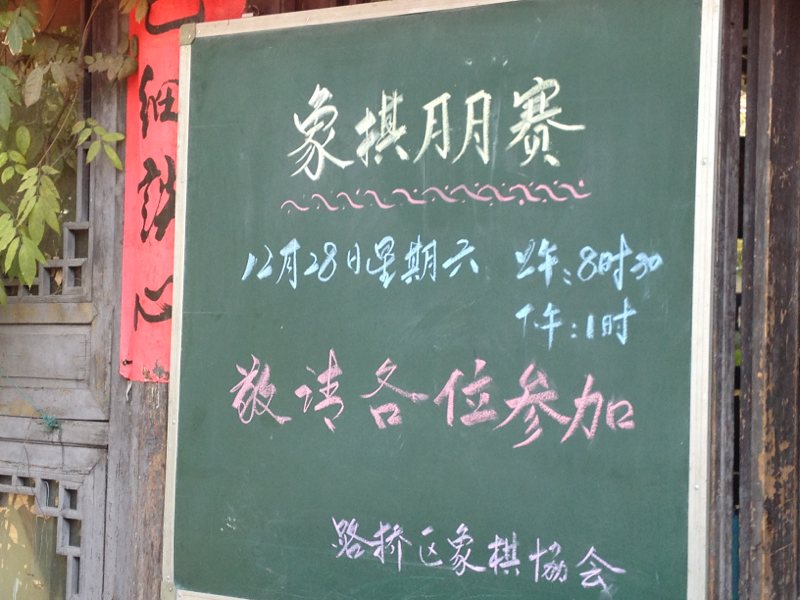 象棋月月赛
12月28日星期六 上午:8时30
下午:1时
敬请各位参加
路桥区象棋协会
细
心